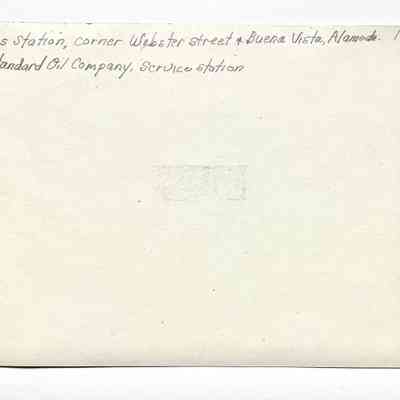 s Station, corner Webster Street & Buena Vista, Alameda. 1
tandard Oil Company. Service Station